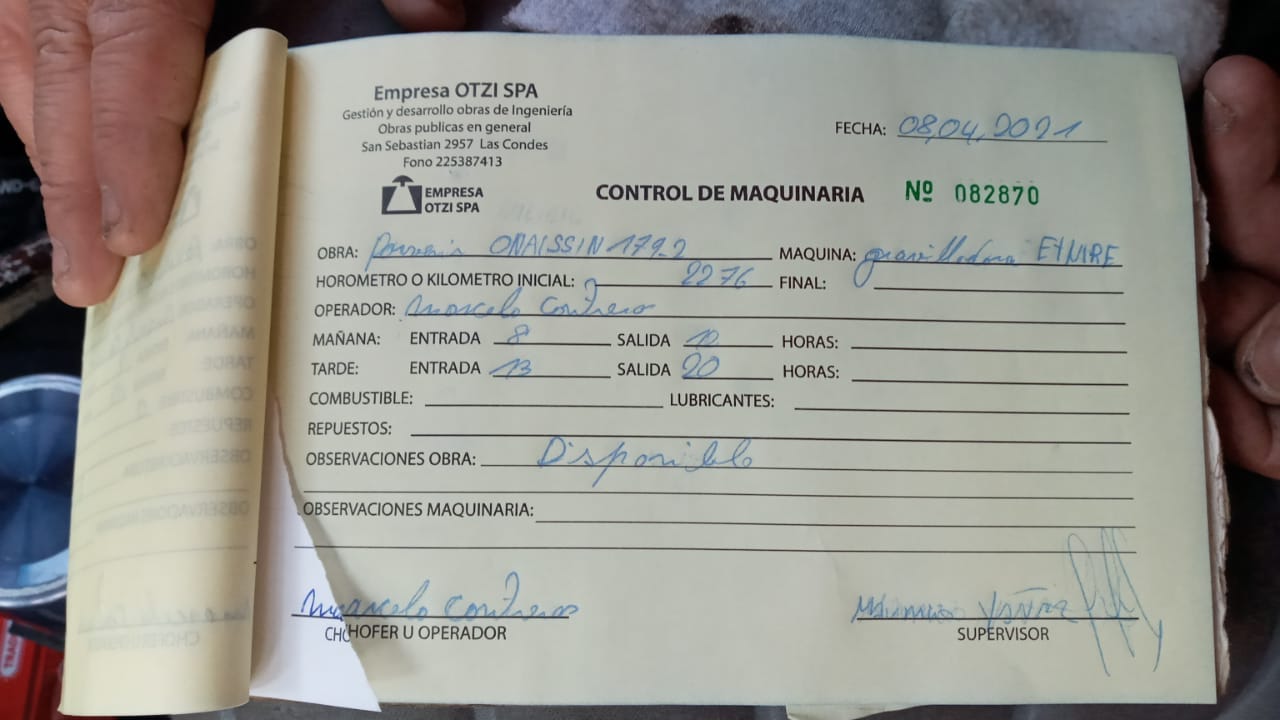 Empresa OTZI SPA
Gestión y desarrollo obras de Ingeniería
Obras publicas en general
San Sebastian 2957 Las Condes
Fono 225387413
FECHA: 08,04,2021
EMPRESA
OTZI SPA
CONTROL DE MAQUINARIA Nº 082870
OBRA: ONAISSIN 1792 MAQUINA: gravilladora ETNIRE
HOROMETRO O KILOMETRO INICIAL: 2276 FINAL:
OPERADOR: Marcelo Contreras
MAÑANA: ENTRADA 8 SALIDA 10 HORAS:
TARDE: ENTRADA 13 SALIDA 20 HORAS:
COMBUSTIBLE: LUBRICANTES:
REPUESTOS:
OBSERVACIONES OBRA: Disponible
OBSERVACIONES MAQUINARIA:
Marcelo Contreras YAÑEZ
CHOFER U OPERADOR SUPERVISOR